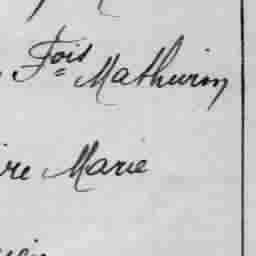 Fois Mathurin
ire Marie